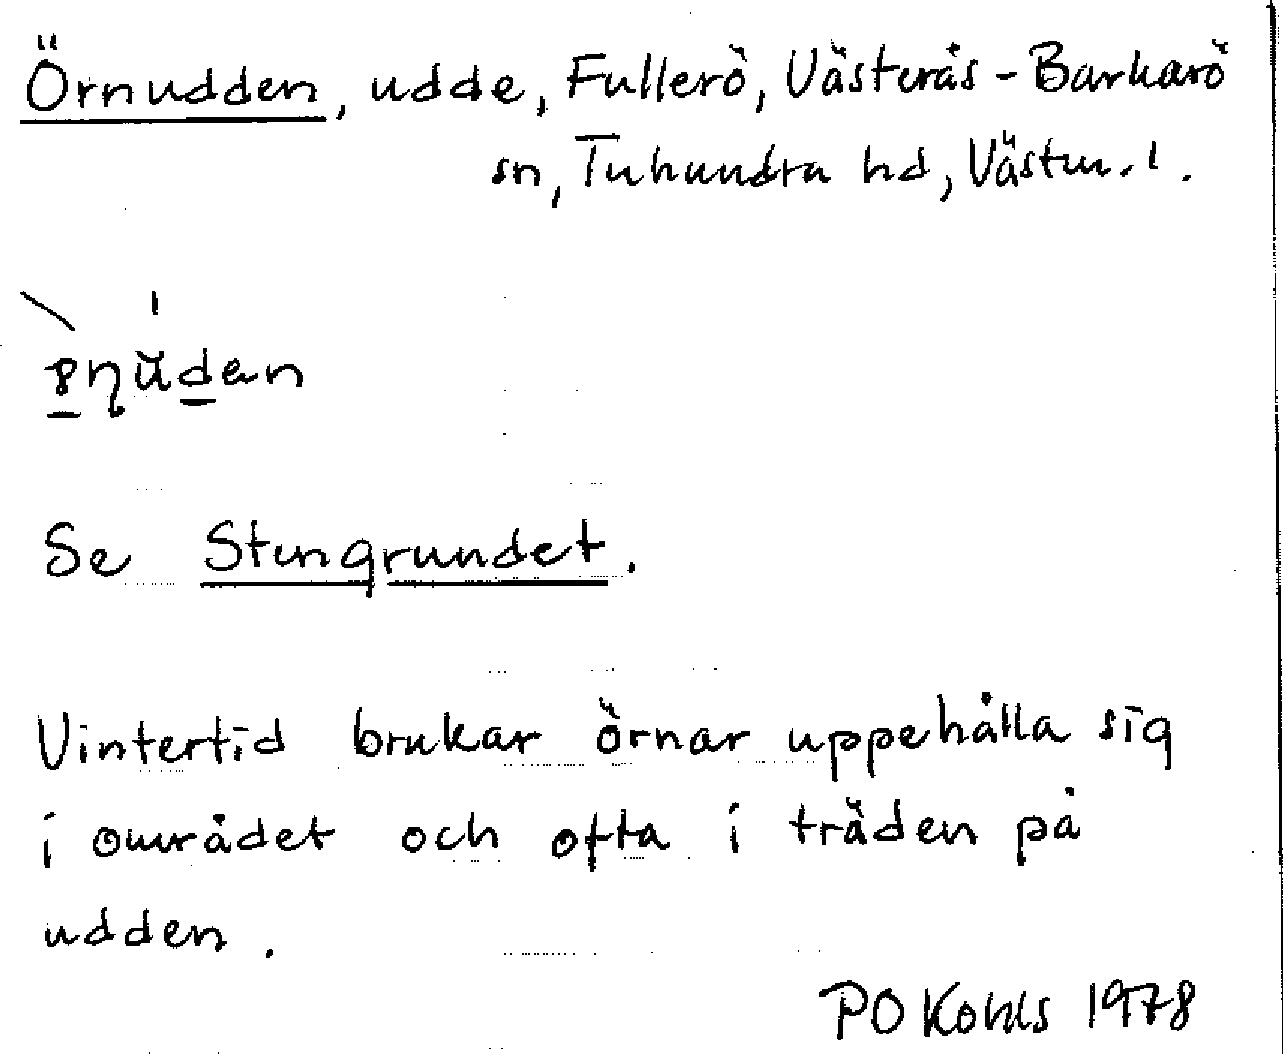 Örnudden, udde, Fullerö, Västerås-Barkarö
sn, Tuhundra hd, Västm. l.
Se Stengrundet.
Vintertid brukar örnar uppehålla sig
i området och ofta i träden på
udden.
PO Kohls 1978